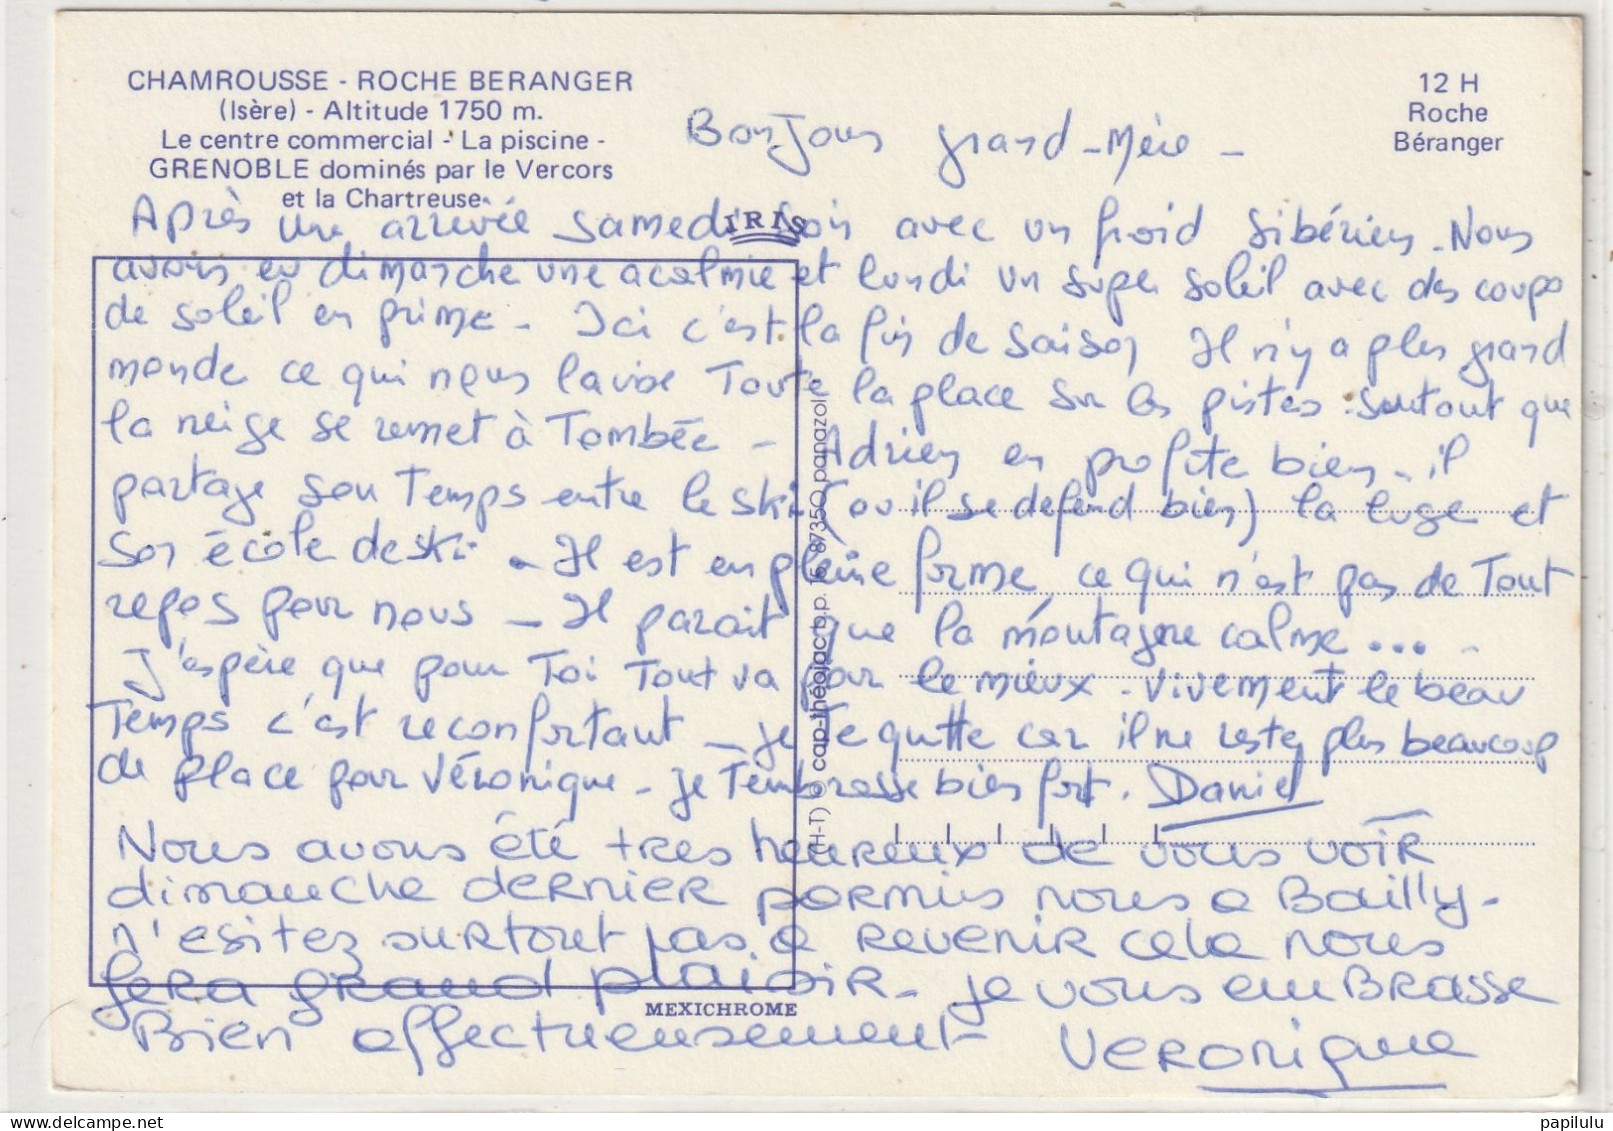 CHAMROUSSE - ROCHE BERANGER
(Isère) - Altitude 1750 m.
Le centre commercial - La piscine -
GRENOBLE dominés par le Vercors
et la Chartreuse.
12 H
Roche
Béranger
IRIS
Bonjour grand-Mère -
Après une arrivée samedi soir avec un froid sibérien. Nous
avons eu dimanche une acalmie et lundi un super soleil avec des coups
de soleil en prime - Ici c'est la fin de saison Il n'y a plus grand
monde ce qui nous laisse Toute la place sur les pistes surtout que
la neige se remet à Tombée - Adrien en profite bien - il
partage son Temps entre le ski (ou il se defend bien) la luge et
son école de ski - Il est en pleine forme ce qui n'est pas de Tout
repos pour nous - Il parait que la montagne calme ... -
J'espère que pour Toi Tout va pour le mieux. Vivement le beau
Temps c'est reconfortant - je Te quitte car il ne reste plus beaucoup
de place pour Véronique - je T'embrasse bien fort. Daniel
Nous avons été tres heureux de vous voir
dimanche dernier parmis nous a Bailly -
n'esitez surtout pas a revenir cela nous
fera grand plaisir - je vous embrasse
Bien affectueusement -
Veronique
MEXICHROME
(H-T) © cap-théojac b.p. 15 87350 panazol
papilulu